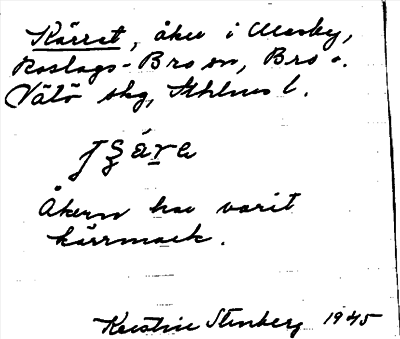 Kärret, åker i Masby,
Roslags-Bro sn, Bro o.
Vätö skg, Sthlms l.
Åkern har varit
kärrmark.
Kerstin Stenberg 1945